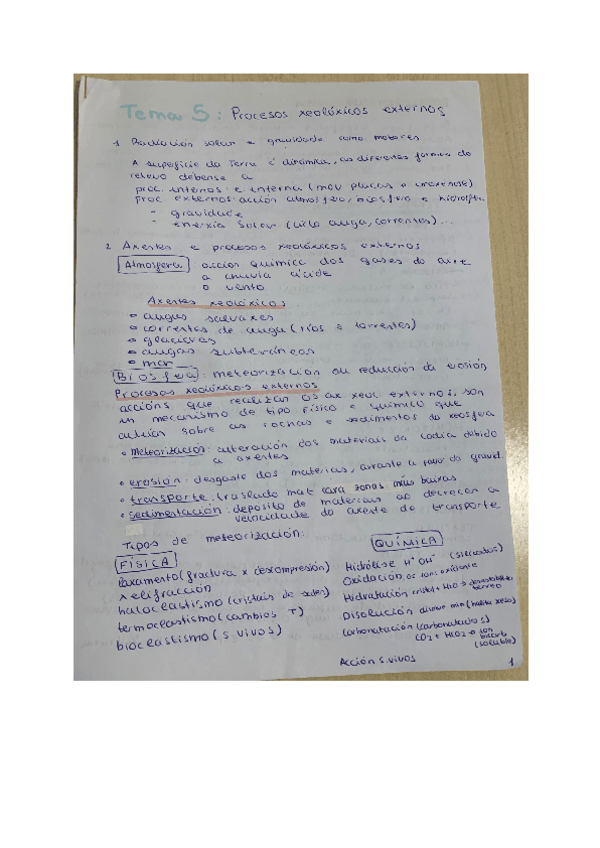 Tema 5: Procesos xeolóxicos externos
1 Radiación solar e gravidade como motores
A superficie da Terra é dinámica, as diferentes formas do
relevo débense a
proc. internos: e interna (mov placas e oroxénese)
proc externos: acción atmosfera, biosfera e hidrosfera
- gravidade
- enerxía solar (ciclo auga, correntes)...
2 Axentes e procesos xeolóxicos externos
Atmosfera acción química dos gases do aire
a chuvia ácida
o vento
Axentes xeolóxicos
• augas salvaxes
• correntes de auga (ríos e torrentes)
• glaciares
• augas subterráneas
• mar
Biosfera: meteorización ou reducción da erosión
Procesos xeolóxicos externos
accións que realizan os ax xeol externos, son
un mecanismo de tipo físico e químico que
actúan sobre as rochas e sedimentos da xeosfera
• meteorización: alteración dos materiais da codia debido
a axentes
• erosión: desgaste dos materias, arraste a favor da gravid
• transporte: traslado mat cara zonas máis baixas
• sedimentación: deposito de materiais ao decrecer a
velocidade do axente de transporte
Tipos de meteorización:
FÍSICA
Laxamento (fractura x descompresión)
xelifracción
haloclastismo (cristais de sales)
termoclastismo (cambios T)
bioclastismo (s. vivos)
QUÍMICA
Hidrólise H+ OH- (silicatos)
Oxidación os ion: oxidante
Hidratación cristal + H2O →
Disolución disolve min (halita xeso)
Carbonatación (carbonatados)
CO2 + H2O → ion
bicarb
(soluble)
Acción s. vivos
1